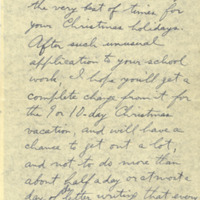 the very best of times for
your Christmas holidays.
After such unusual
application to your school
work. I hope you'll get a
complete change from it for
the 9 or 10-day Christmas
vacation, and will have a
chance to get out a lot,
and not to do more than
about half a day or at most a
day of letter writing that every